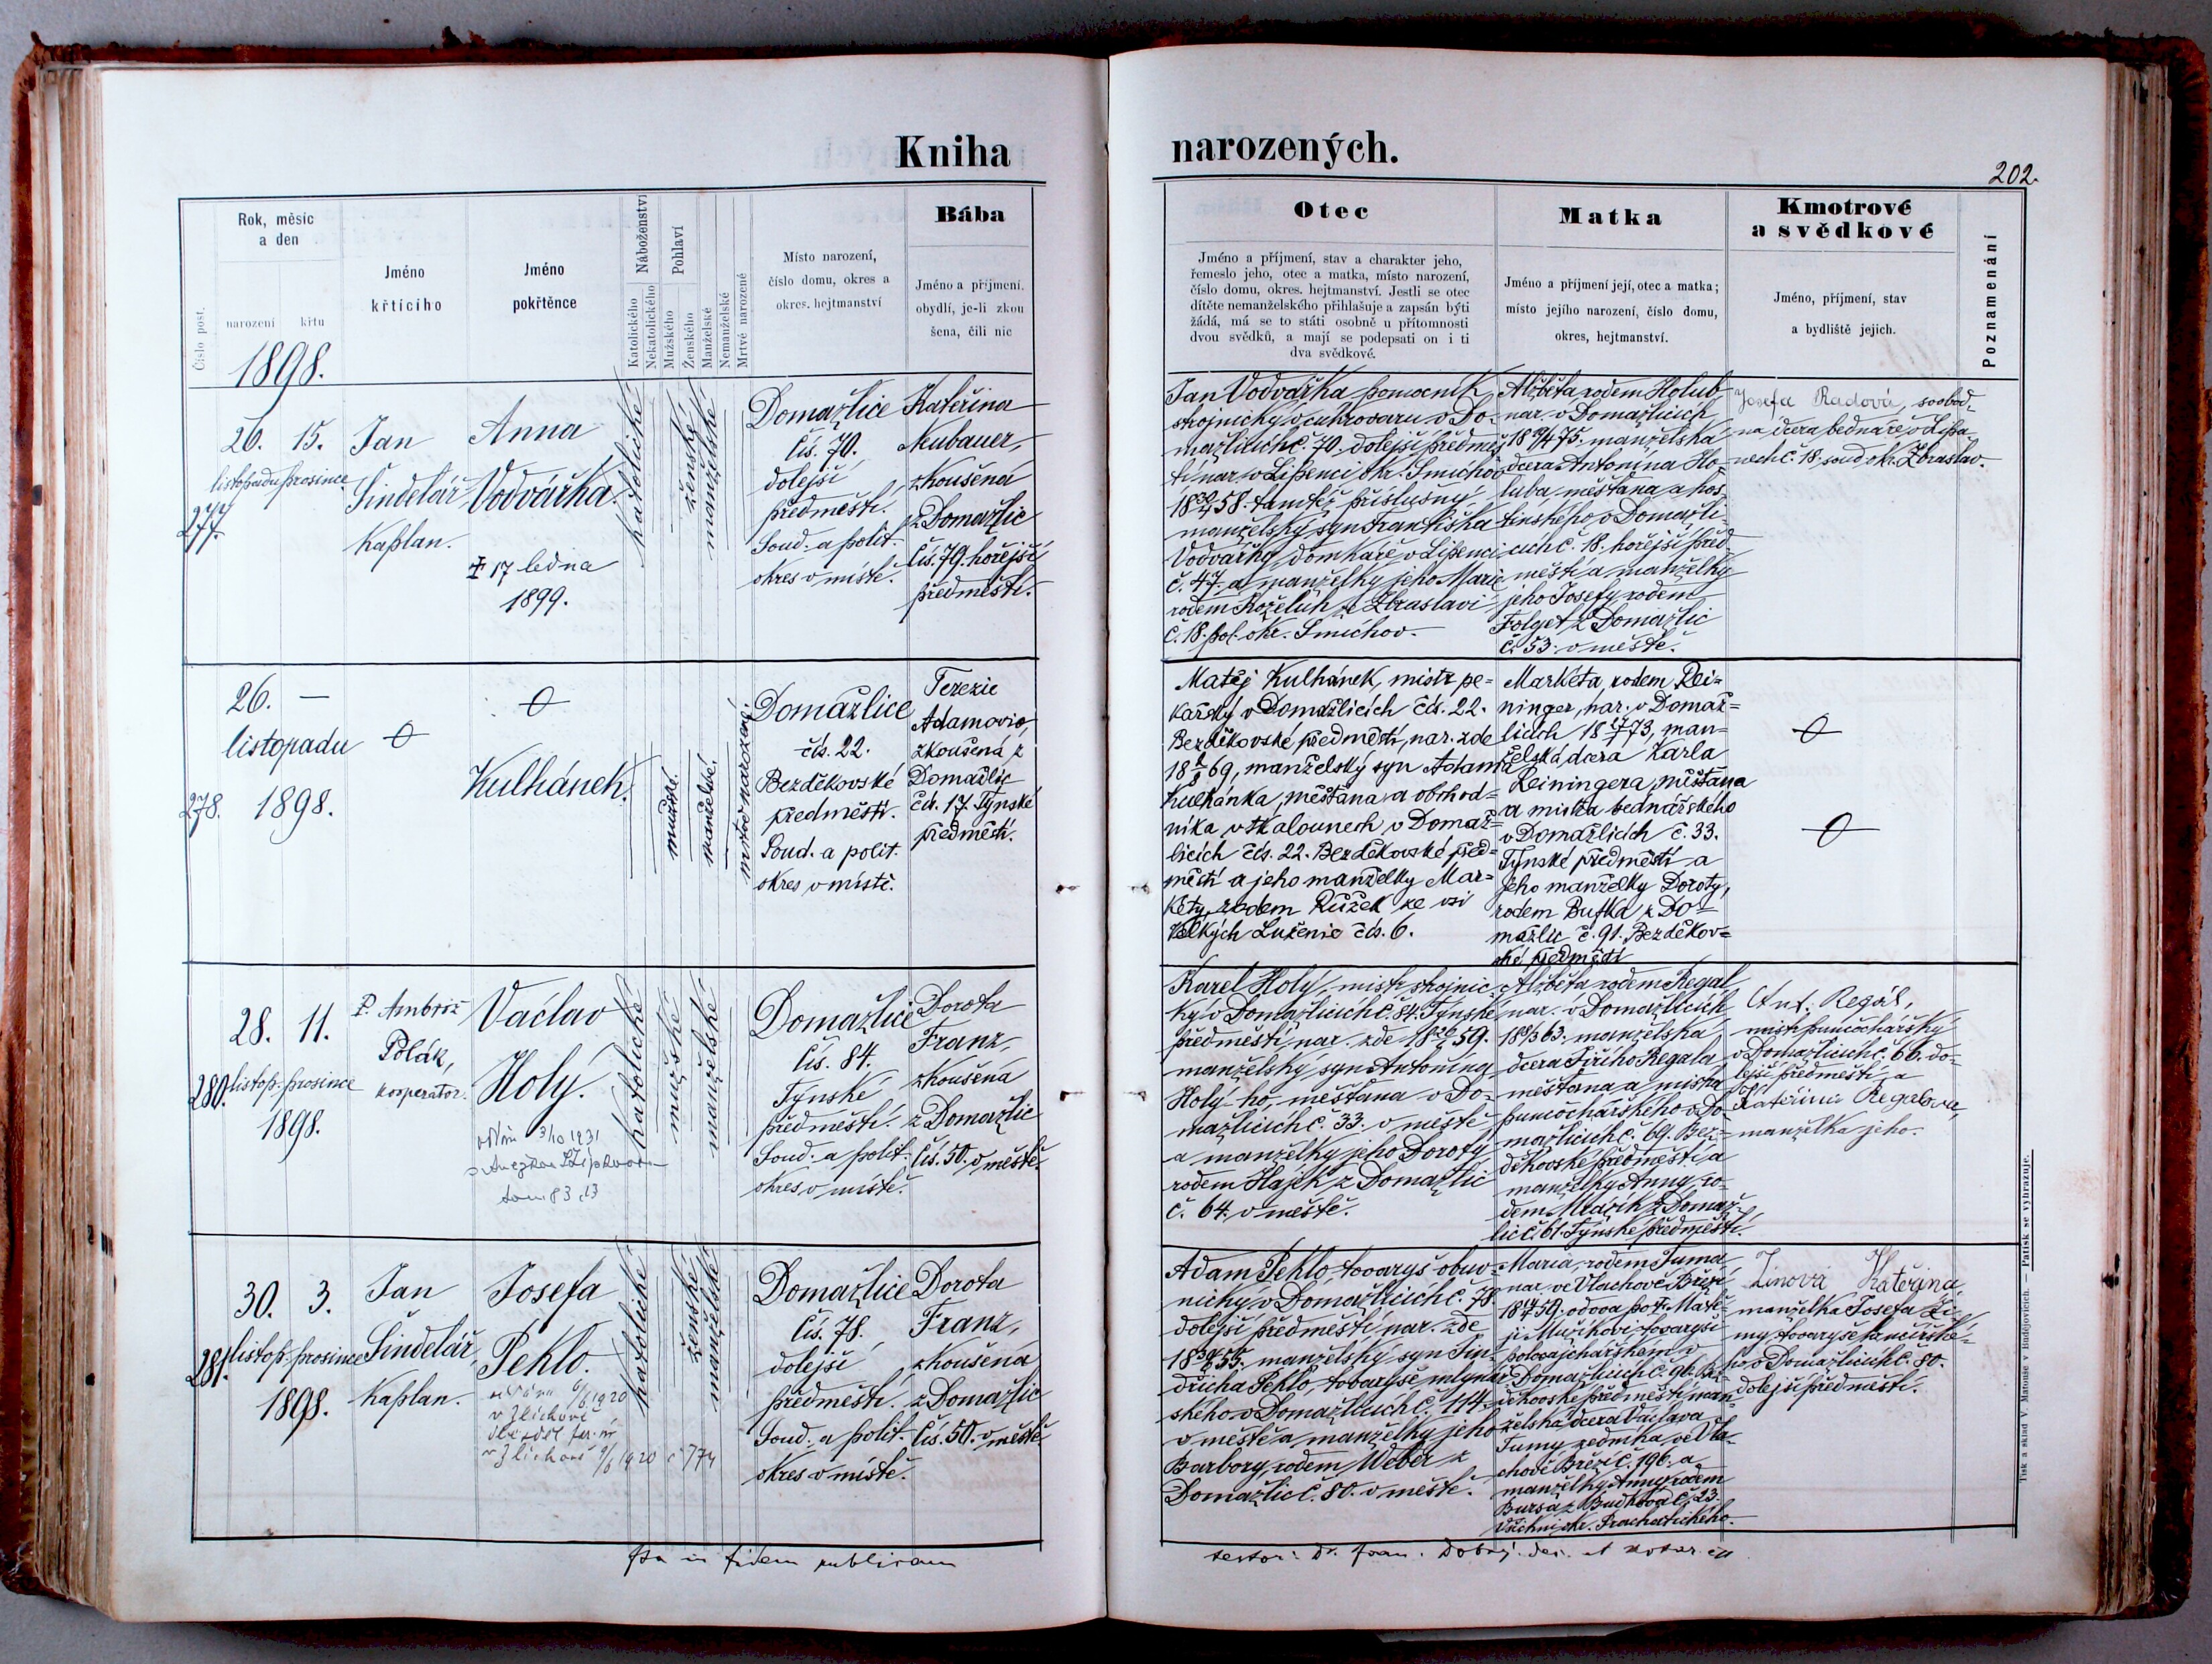 Kniha
narozených.
202.
Číslo post.
Rok, měsíc
a den
narození
křtu
1898.
Jméno
křtícího
Jméno
pokřtěnce
Náboženství
Katolického
Nekatolického
Pohlaví
Mužského
Ženského
Manželské
Nemanželské
Mrtvě narozené
Místo narození,
číslo domu, okres a
okres. hejtmanství
Bába
Jméno a příjmení.
obydlí, je-li zkou
šena, čili nic
Otec
Jméno a příjmení, stav a charakter jeho,
řemeslo jeho, otec a matka, místo narození,
číslo domu, okres. hejtmanství. Jestli se otec
dítěte nemanželského přihlašuje a zapsán býti
žádá, má se to státi osobně u přítomnosti
dvou svědků, a mají se podepsati on i ti
dva svědkové.
Matka
Jméno a příjmení její, otec a matka;
místo jejího narození, číslo domu,
okres, hejtmanství.
Kmotrové
a svědkové
Jméno, příjmení, stav
a bydliště jejich.
Poznamenání
277.
26. 15.
listopadu prosince
Jan
Šindelář
Kaplan.
Anna
Vodvářka.
17 ledna
1899.
katolické
ženské
manželské
Domažlice
čís. 70.
dolejší
předměstí.
Soud. a polit.
okres v místě.
Kateřina
Neubauer,
zkoušená
z Domažlic
čís. 79. hořejší
předměstí.
Jan Vodvářka pomocník
strojnický v cukrovaru v Do-
mažlicích č. 70. dolejší předměs-
tí nar. v Lipenci okr. Smíchov
58. tamtéž příslušný
manželský syn Františka
Vodvářky domkáře v Lipenci
č. 47. a manželky jeho Marie
rodem Koželuh z Zbraslavi
č. 18. pol. okr. Smíchov.
Alžběta rodem Holub
nar. v Domažlicích
75. manželská
dcera Antonína Ho-
luba měšťana a hos-
tinského v Domažli-
cích č. 18. hořejší před-
městí a manželky
jeho Josefy rodem
Folget z Domažlic
č. 53. v městě.
Josefa Radová, svobod-
ná dcera bednáře v Lipa-
nech č. 18. soud. okr. Zbraslav.
278.
26. —
listopadu
1898.
Kulhánek.
mužské.
manželské.
mrtvě narozené.
Domažlice
čís. 22.
Bezděkovské
předměstí.
Soud. a polit.
okres v místě.
Terezie
Adamovic,
zkoušená z
Domažlic
čís. 17. Týnské
předměstí.
Matěj Kulhánek, mistr pe-
kařský v Domažlicích čís. 22.
Bezděkovské předměstí, nar. zde
69, manželský syn Adama
Kulhánka, měšťana a obchod-
níka v tkalounech v Domaž-
licích čís. 22. Bezděkovské před-
městí a jeho manželky Mar-
kéty, rodem Růžek ze vsi
Velkých Luženic čís. 6.
Markéta, rodem Rei-
ninger, nar. v Domaž-
licích 73, man-
želská dcera Karla
Reiningera, měšťana
a mistra bednářského
v Domažlicích č. 33.
Týnské předměstí a
jeho manželky Doroty,
rodem Bufka z Do-
mažlic č. 91. Bezděkov-
ské předměstí
280.
28. 11.
listop. prosince
1898.
P. Ambrož
Polák,
kooperator.
Václav
Holý.
3/10 1931
katolické
mužské
manželské
Domažlice
čís. 84.
Týnské
předměstí.
Soud. a polit.
okres v místě.
Dorota
Franz,
zkoušená
z Domažlic
čís. 50. v městě.
Karel Holý, mistr strojnic-
ký v Domažlicích č. 84. Týnské
předměstí nar. zde 59.
manželský syn Antonína
Holý-ho, měšťana v Do-
mažlicích č. 33. v městě
a manželky jeho Doroty
rodem Hájek z Domažlic
č. 64. v městě.
Alžběta rodem Regal
nar. v Domažlicích
63. manželská
dcera Jiřího Regala
měšťana a mistra
punčochářského v Do-
mažlicích č. 69. Bez-
děkovské předměstí a
manželky Anny ro-
dem Mrázík z Domaž-
lic č. 61. Týnské předměstí.
Ant. Regál,
mistr punčochářský
v Domažlicích č. 66. do-
lejší předměstí a
Kateřina Regalova,
manželka jeho.
281.
30. 3.
listop. prosince
1898.
Jan
Šindelář,
Kaplan.
Josefa
Pehlo.
1920
v Jlichově
1920
katolické
ženské
manželské
Domažlice
čís. 78.
dolejší
předměstí.
Soud. a polit.
okres v místě.
Dorota
Franz,
zkoušená
z Domažlic
čís. 50. v městě.
Adam Pehlo, tovaryš obuv-
nický v Domažlicích č. 78.
dolejší předměstí nar. zde
manželský syn Jin-
dřicha Pehlo, tovaryše mlynář-
ského v Domažlicích č. 114.
v městě a manželky jeho
Barbory, rodem Weber z
Domažlic č. 80. v městě.
Maria, rodem Tuma,
nar. ve Vlachově Březí
59. vdova po Matě-
ji Mužíkovi tovaryši
v Domažlicích č. 96. Bez-
děkovské předměstí man-
želská dcera Václava
Tumy zedníka ve Vla-
chově Březí č. 196. a
manželky Anny rodem
Bursa z Budkova č. 23.
všichni okr. Prachatického.
Zímová Kateřina,
manželka Josefa Zí-
my tovaryše
ho v Domažlicích č. 80.
dolejší předměstí.
Ita in fidem publicam
testor: Dr. Joan.
Tisk a sklad V. Matouše v Budějovicích. — Patisk se vyhrazuje.